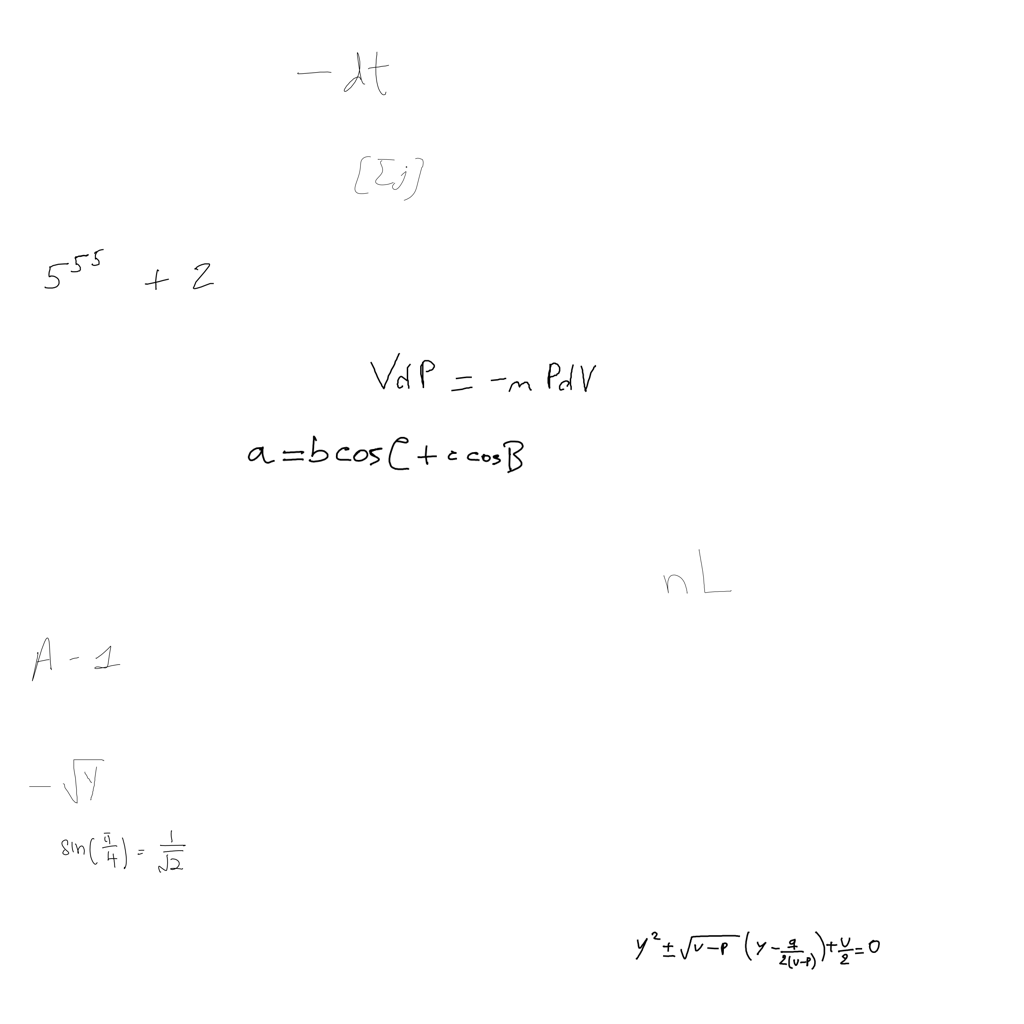 - dt
[Σj]
5^{5^5} + 2
VdP = -n PdV
a = b cos C + c cos B
nL
A - 1
- √Y
sin(π/4) = 1/√2
y² ± √(v-p) (y - q/(2(v-p))) + v/2 = 0